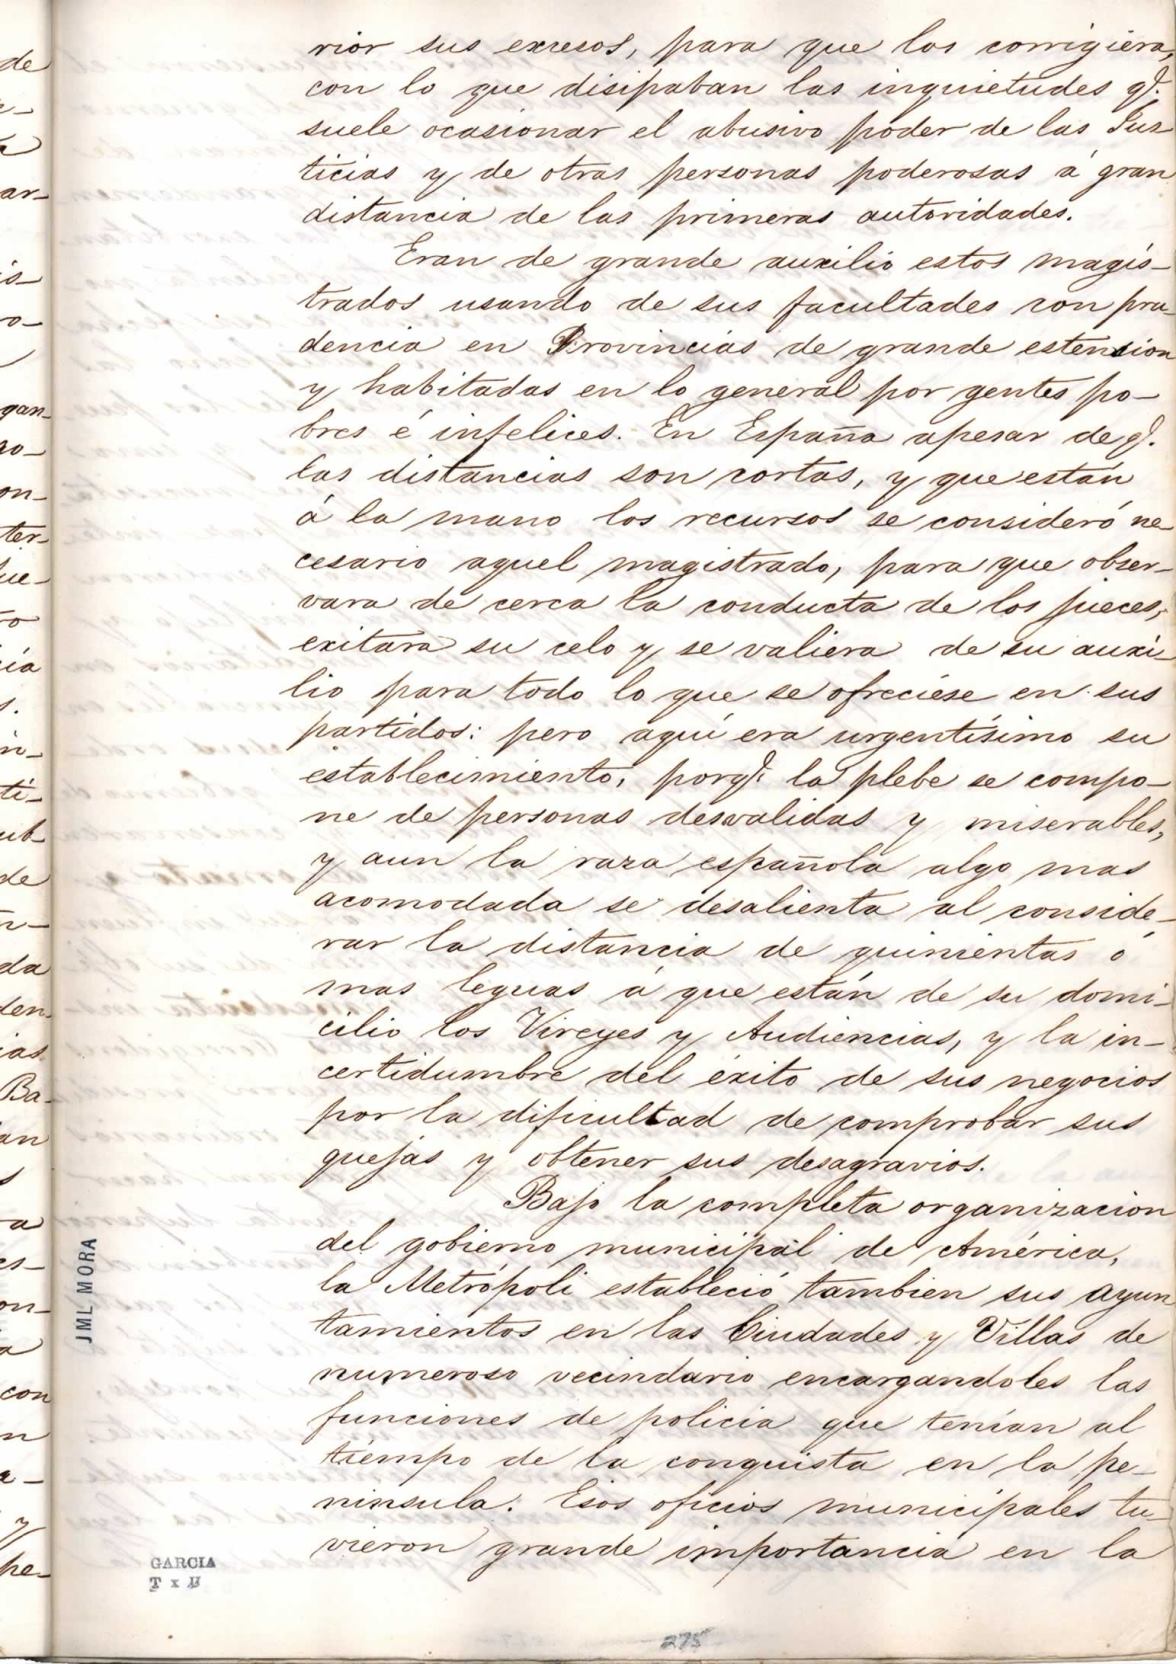 rior sus excesos, para que los corrigiera,
con lo que disipaban las inquietudes q.
suele ocasionar el abusivo poder de las Jus
ticias y de otras personas poderosas á gran
distancia de las primeras autoridades.
Eran de grande auxilio estos magis-
trados usando de sus facultades con pru-
dencia en Provincias de grande estension
y habitadas en lo general por gentes po-
bres é infelices. En España apesar de q.
las distancias son cortas, y que están
á la mano los recursos se consideró ne
cesario aquel magistrado, para que obser-
vara de cerca la conducta de los jueces,
exitara su celo y se valiera de su auxi-
lio para todo lo que se ofreciese en sus
partidos: pero aquí era urgentísimo su
establecimiento, porq. la plebe se compo-
ne de personas desvalidas y miserables,
y aun la raza española algo mas
acomodada se desalienta al conside-
rar la distancia de quinientas ó
mas leguas á que están de su domi-
cilio los Vireyes y Audiencias, y la in-
certidumbre del éxito de sus negocios
por la dificultad de comprobar sus
quejas y obtener sus desagravios.
Bajo la completa organizacion
del gobierno municipal de América,
la Metrópoli estableció tambien sus ayun
tamientos en las Ciudades y Villas de
numeroso vecindario encargandoles las
funciones de policia que tenían al
tiempo de la conquista en la pe-
ninsula. Esos oficios municipales tu-
vieron grande importancia en la
JML MORA
GARCIA
T x U
275
de
ar-
is-
o-
gan-
no-
on-
ter-
ue-
to
ia
s.
in-
ti-
ub-
de
n-
da
den-
ias
Ba-
an
s
ra
es-
on-
a
con
n
a-
y
he-